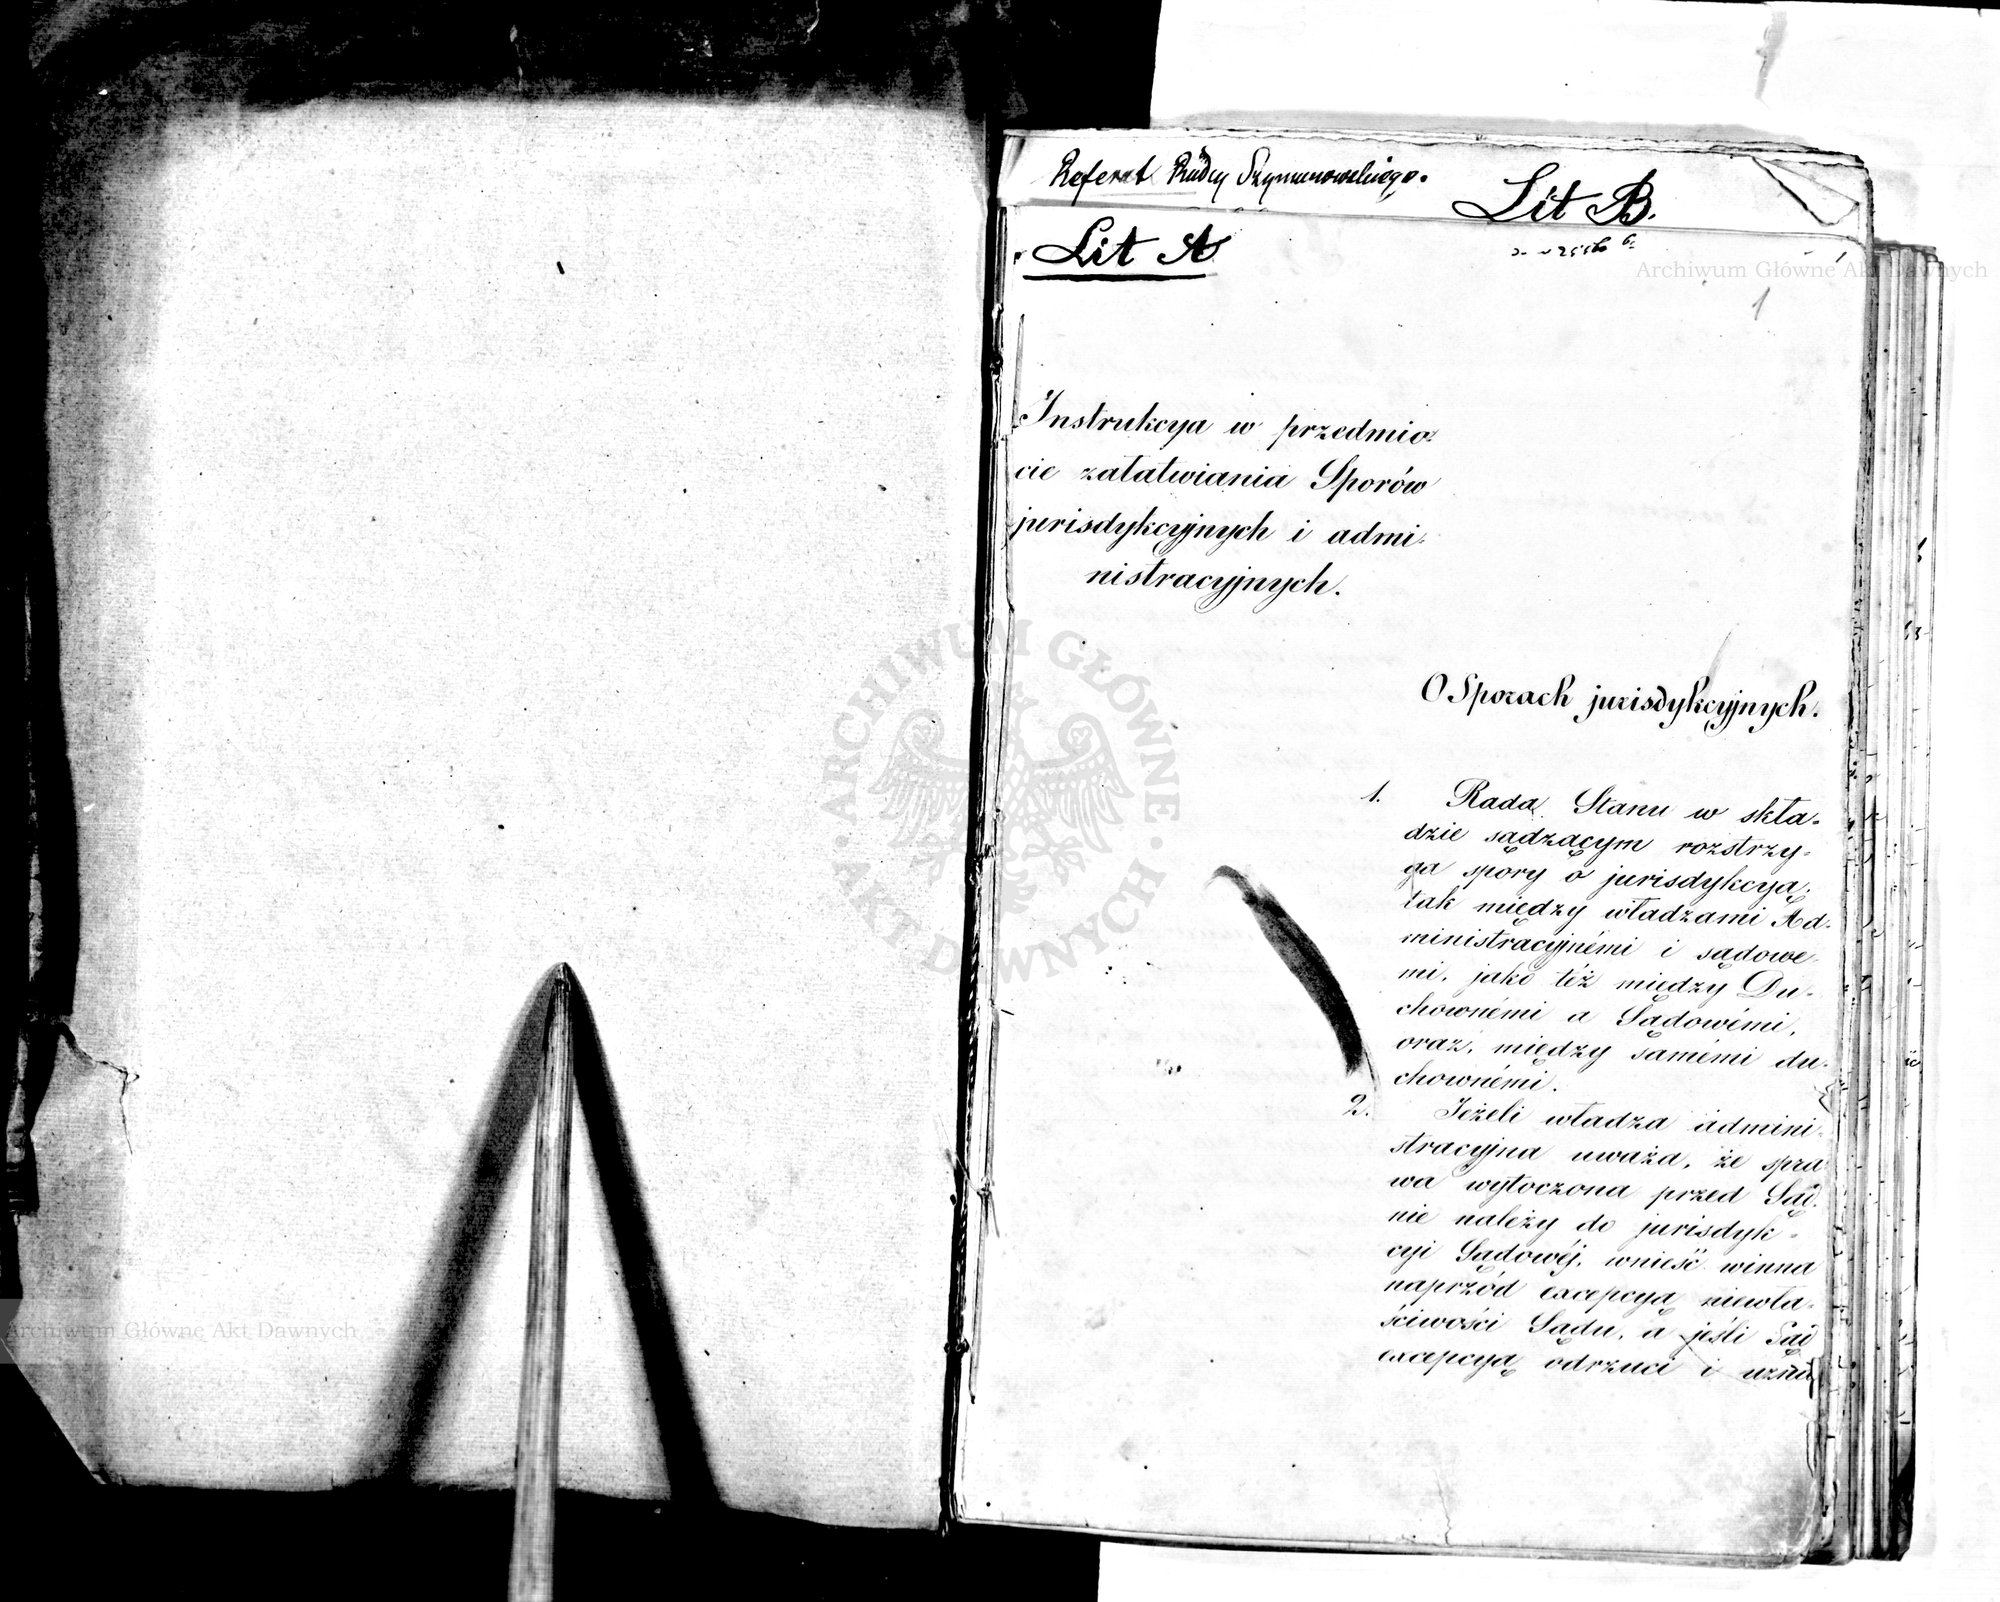 Referat Radcy Szymanowskiego.
Lit B.
Lit A
1
Instrukcya w przedmio-
cie załatwiania Sporów
jurisdykcyjnych i admi-
nistracyjnych.
O Sporach jurisdykcyjnych.
1. Rada Stanu w skła-
dzie sądzącym rozstrzy-
ga spory o jurisdykcyą,
tak między władzami Ad-
ministracyjnémi i sądowe-
mi, jako téż między Du-
chownémi a Sądowémi,
oraz, między samémi du-
chownémi.
2. Jeżeli władza admini-
stracyjna uważa, że spra
wa wytoczona przed Sąd,
nie należy do jurisdyk-
cyi Sądowéj, wnieść winna
naprzód excepcyą niewła-
ściwości Sądu, a jeśli Sąd
excepcyą odrzuci i uzna
Archiwum Główne Akt Dawnych
ARCHIWUM GŁÓWNE · AKT DAWNYCH ·
Archiwum Główne Akt Dawnych